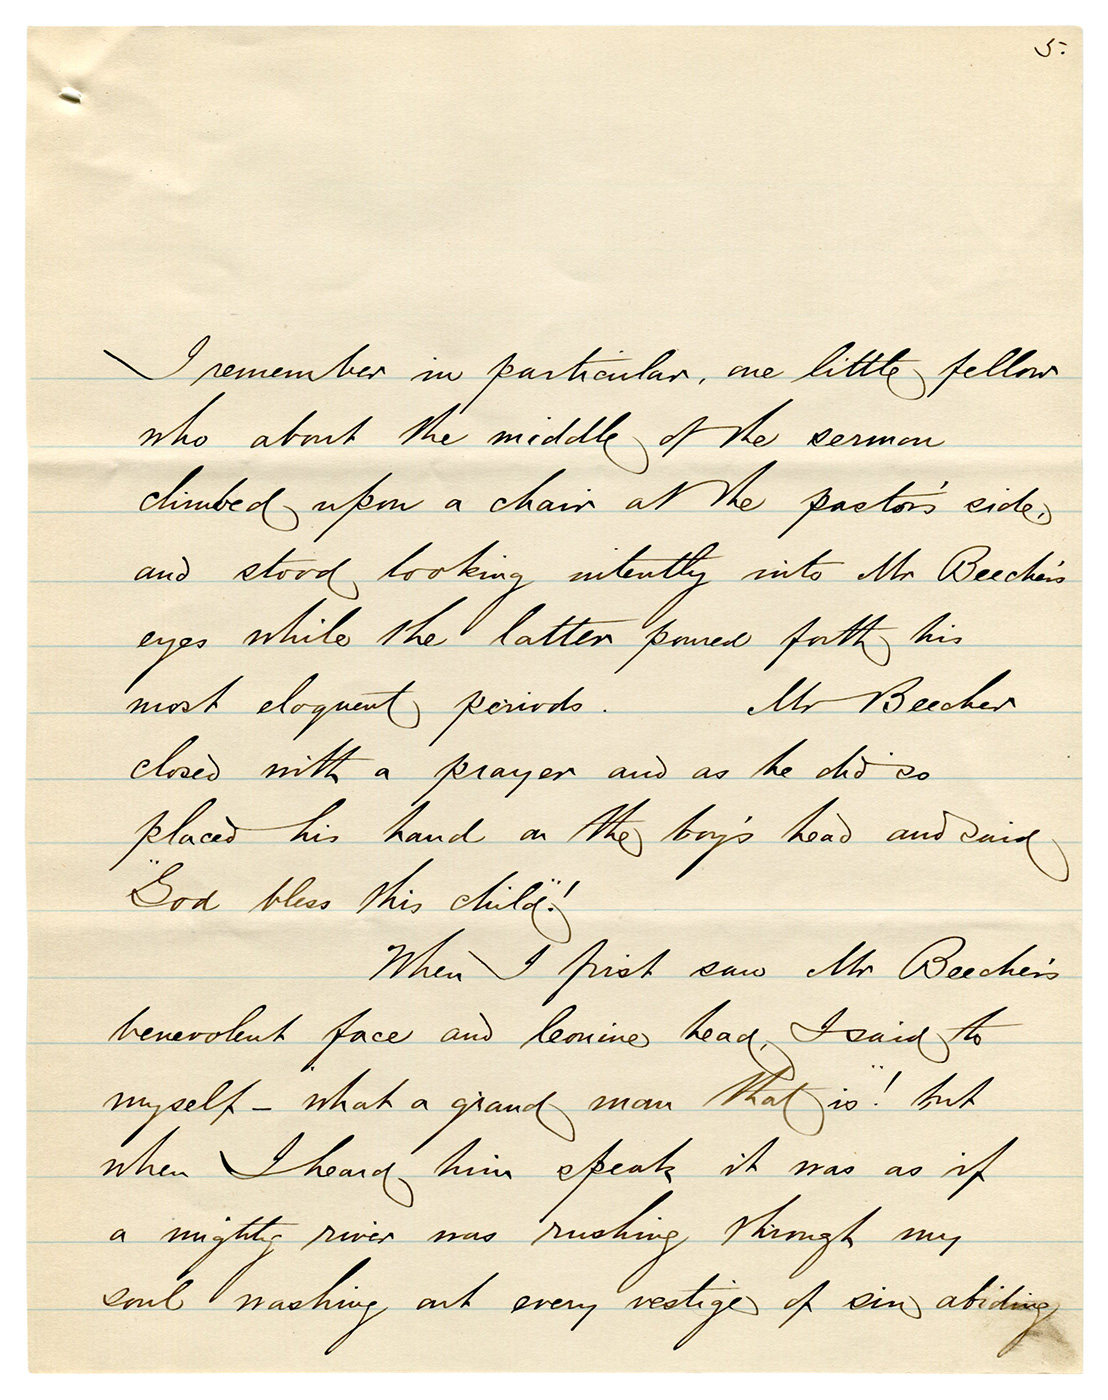 5.
I remember in particular, one little fellow
who about the middle of the sermon
climbed upon a chair at the pastor's side,
and stood looking intently into Mr Beecher's
eyes while the latter poured forth his
most eloquent periods. Mr Beecher
closed with a prayer and as he did so
placed his hand on the boy's head and said
"God bless this child"!
When I first saw Mr Beecher's
benevolent face and leonine head, I said to
myself - "what a grand man that is"! but
when I heard him speak it was as if
a mighty river was rushing through my
soul washing out every vestige of sin abiding